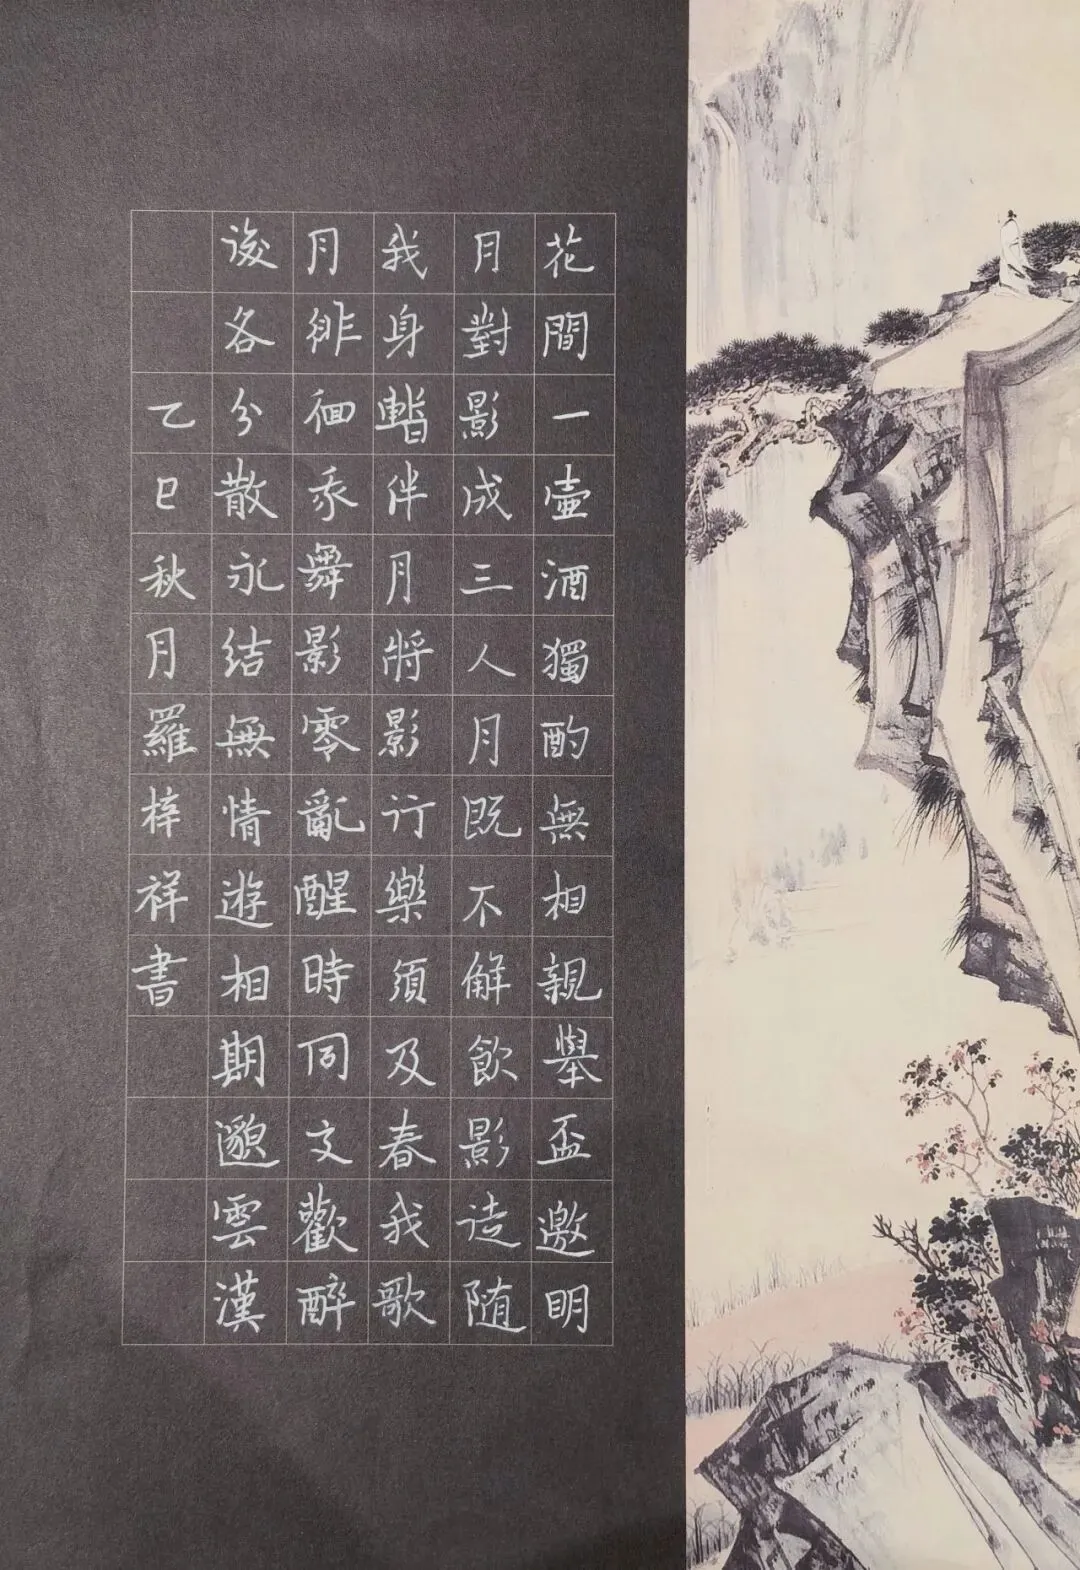 花間一壺酒獨酌無相親舉盃邀明
月對影成三人月既不解飲影徒随
我身暫伴月將影行樂須及春我歌
月徘徊我舞影零亂醒時同交歡醉
後各分散永結無情遊相期邈雲漢
乙巳秋月羅梓祥書